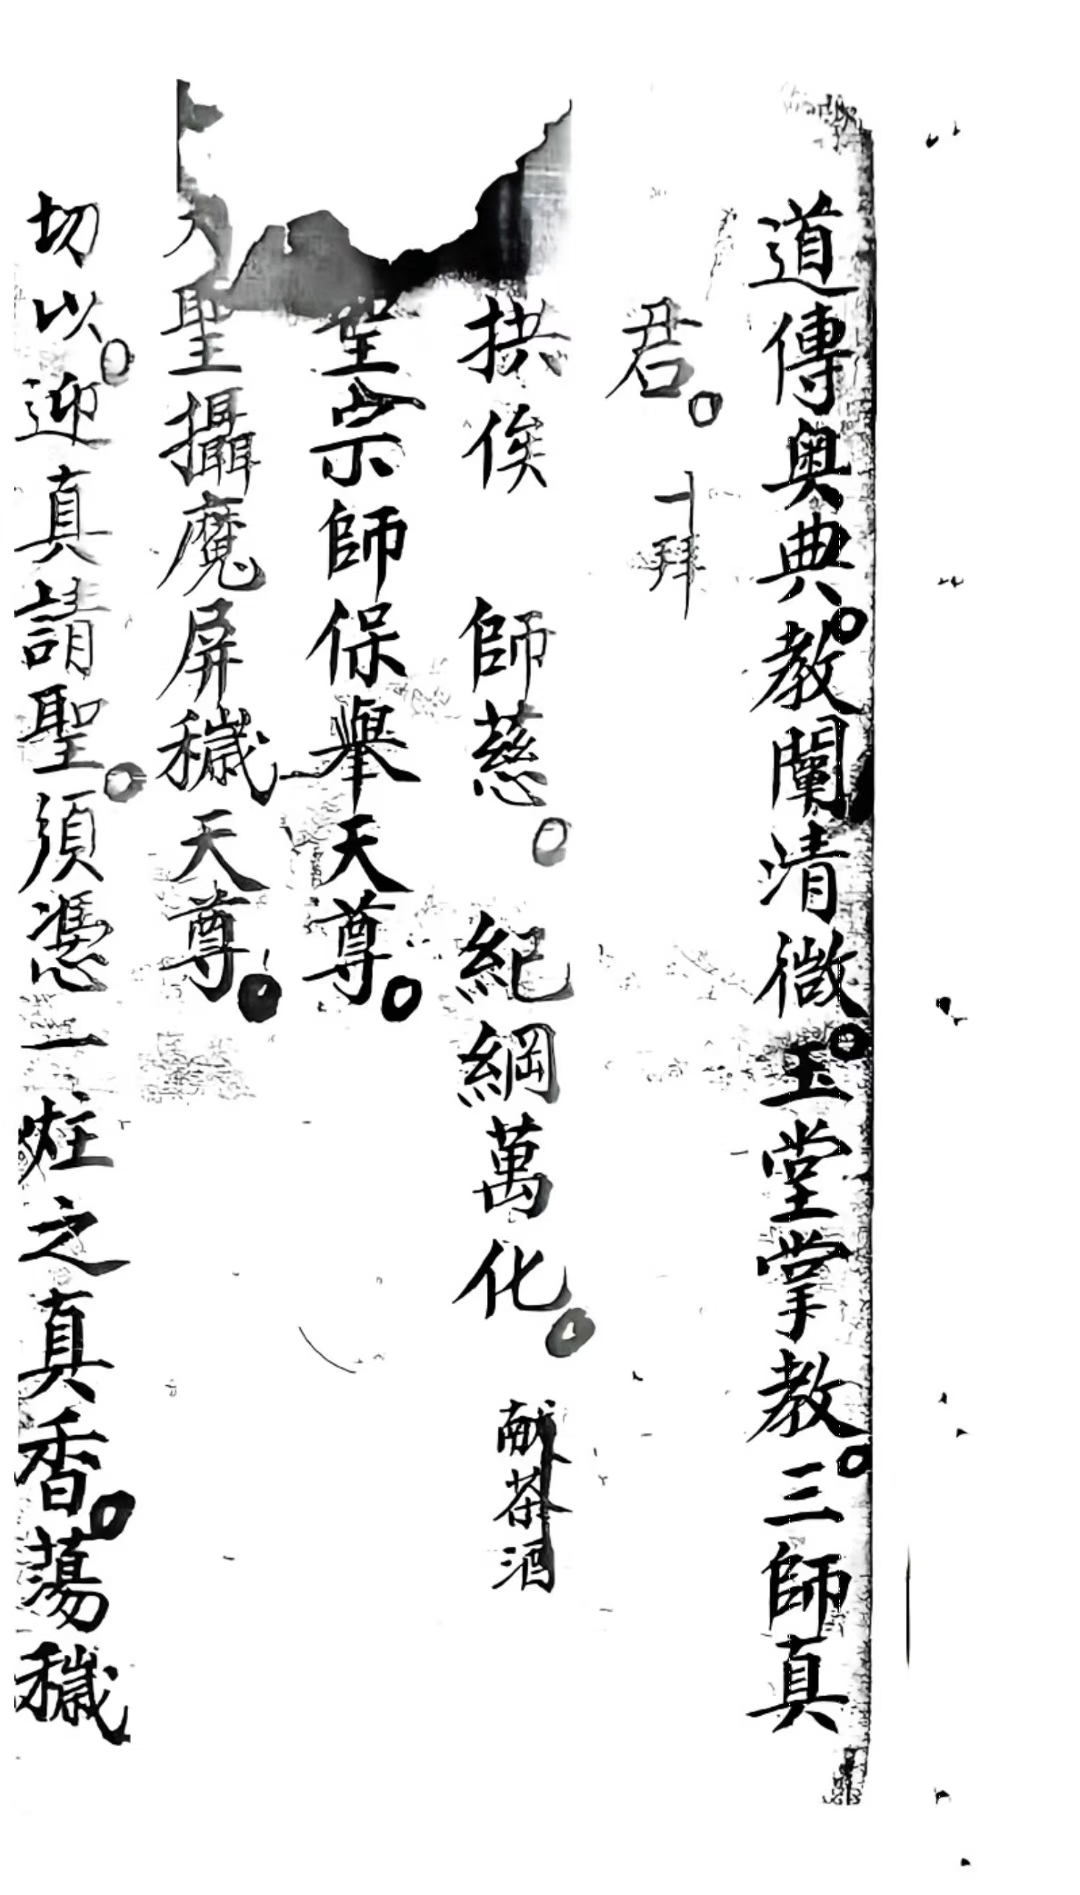 道傳奧典。教闡清微。玉堂掌教。三師真
君。 十拜
拱俟 師慈。 紀綱萬化。 献茶酒
宗師保舉天尊。
大聖攝魔屏穢天尊。
切以。迎真請聖。須憑一炷之真香。蕩穢